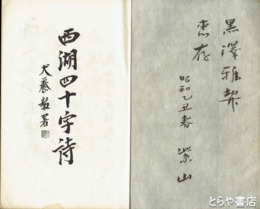 黒澤雅契
恵存
昭和乙丑春
紫山
西湖四十字詩
犬養毅署
とらや書店